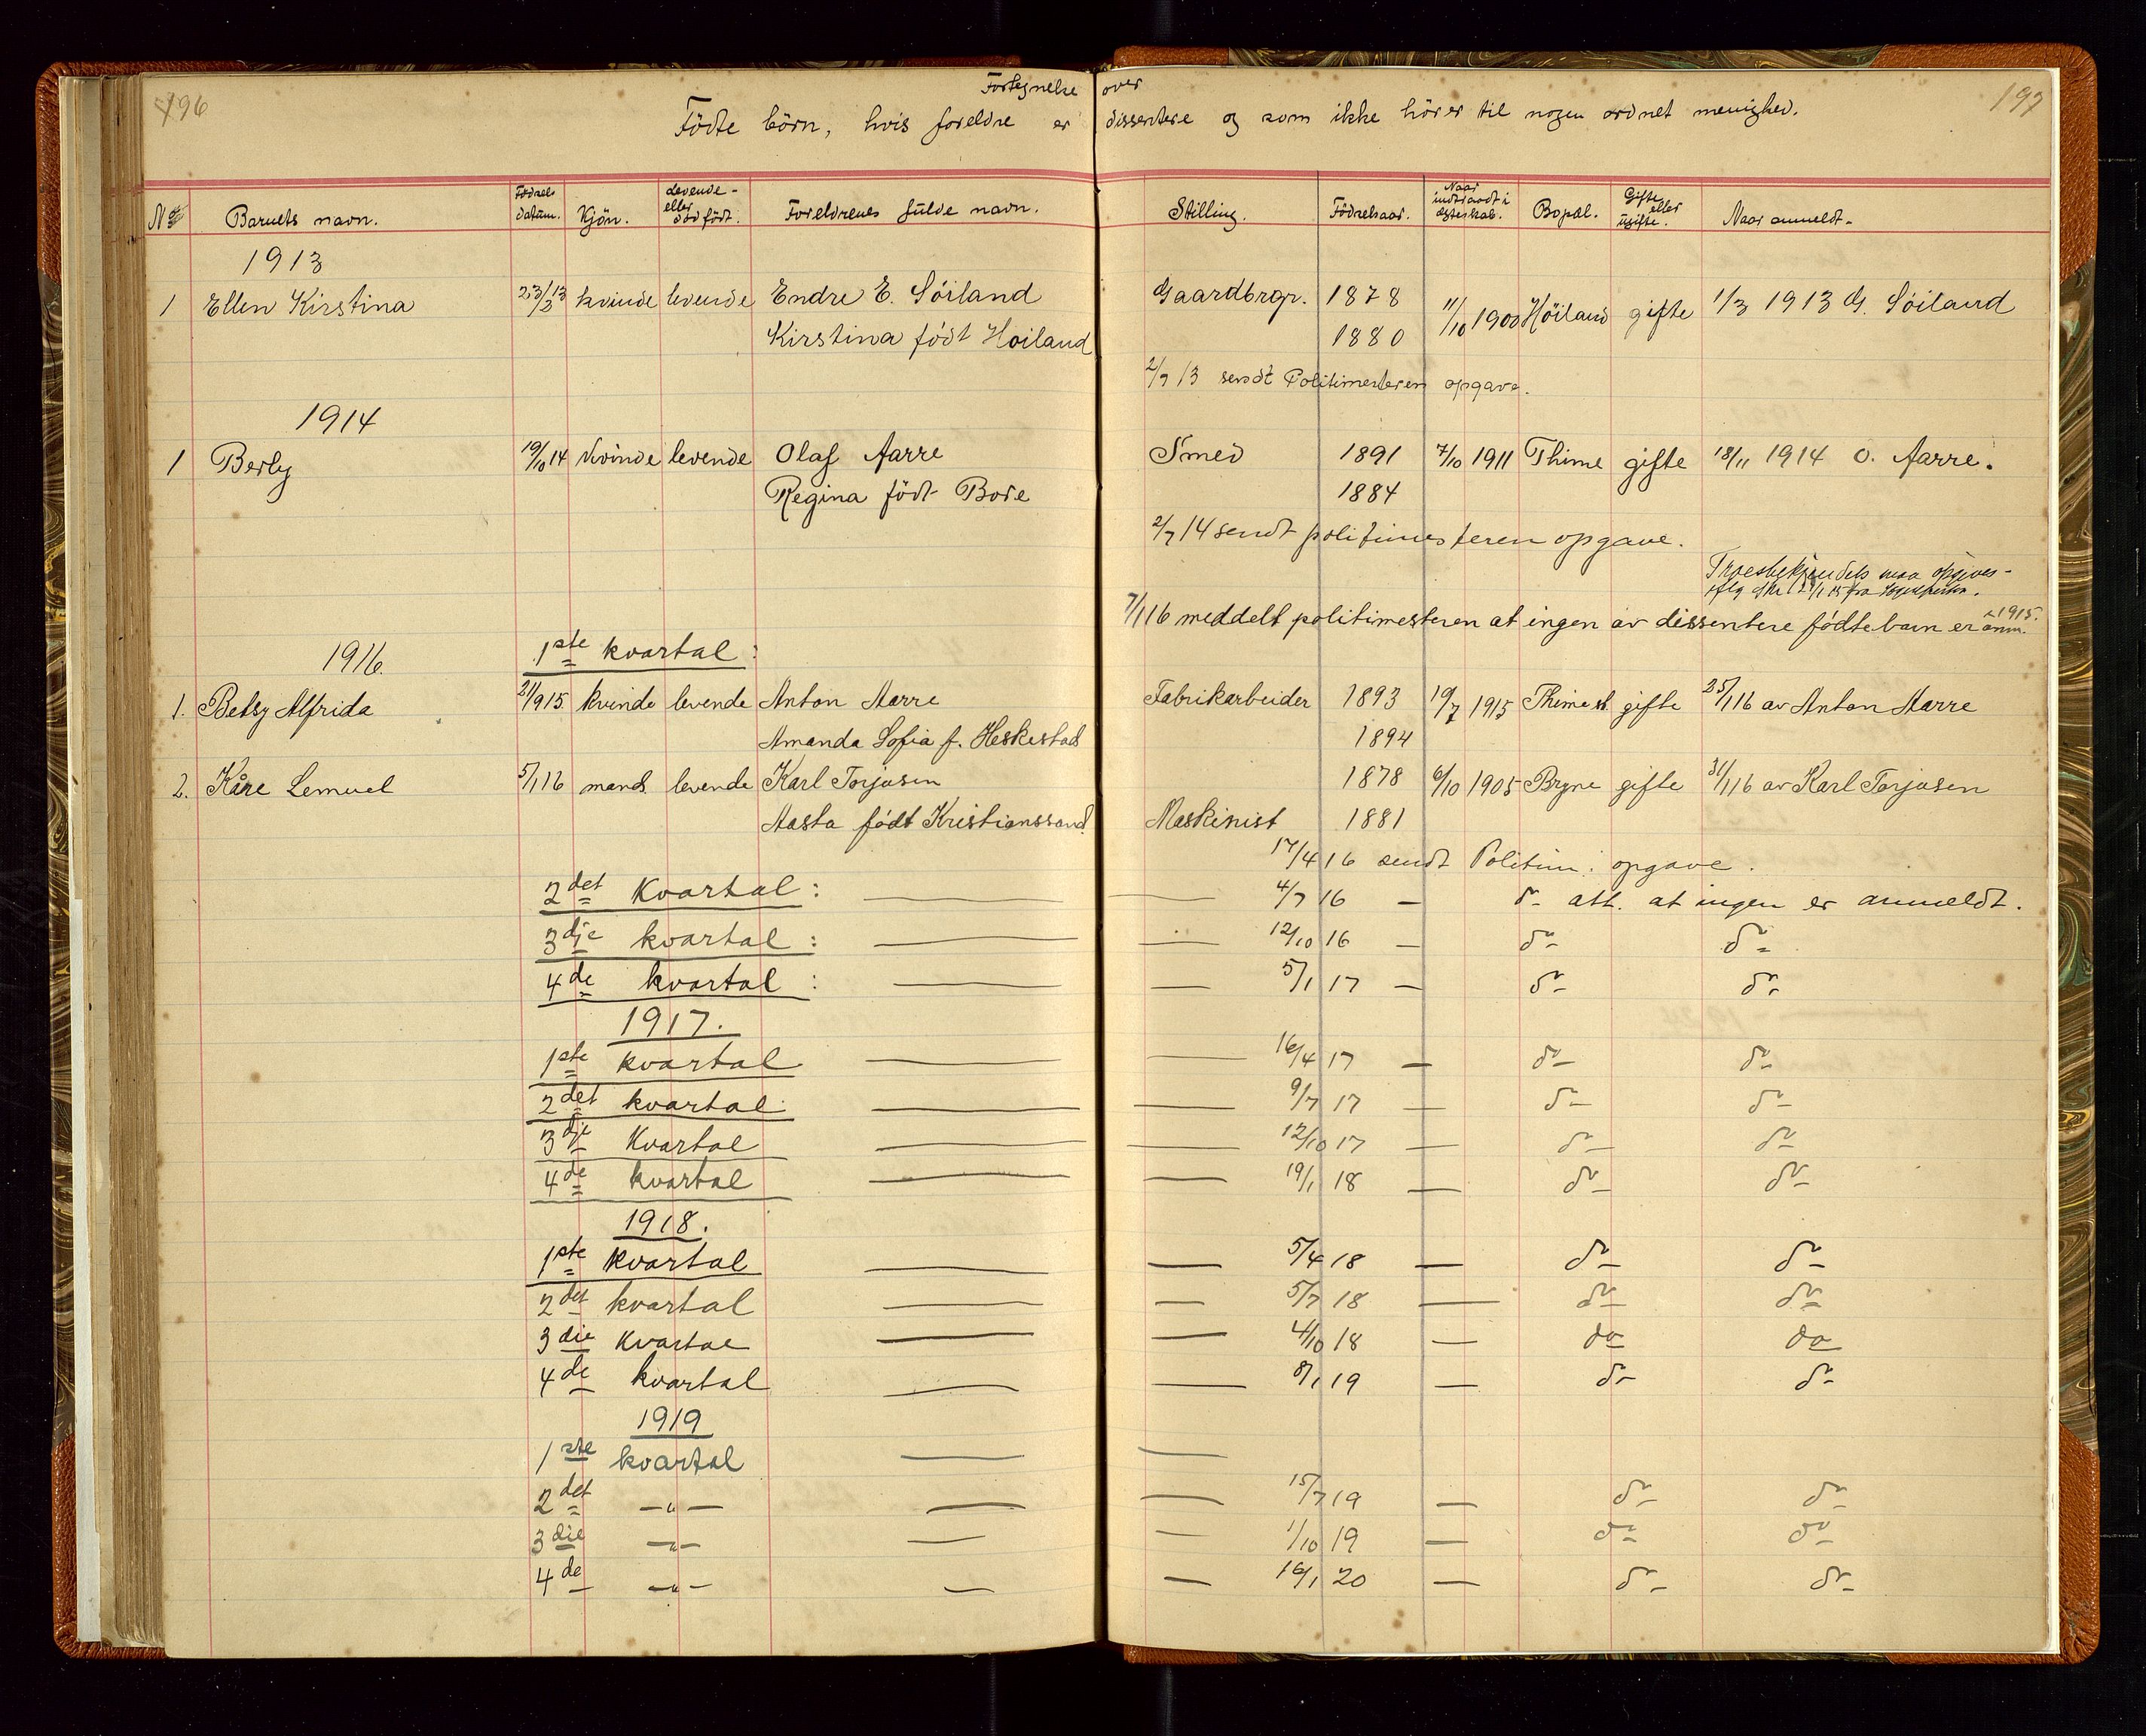 196
197
Fortegnelse over
Födte börn, hvis foreldre er dissentere og som ikke hörer til nogen ordnet menighed.
No Barnets navn. Födsels datum. Kjön. Levende - eller död födt. Foreldrenes fulde navn. Stilling. Födselsaar. Naar indtraadt i egteskab. Bopæl. Gifte eller ugifte. Naar anmeldt-
1913
1 Ellen Kirstina 23/3 13 kvinde levende Endre E. Söiland Gaardbrgr. 1878 11/10 1900 Höiland gifte 1/3 1913 G. Söiland
Kirstina födt Hoiland 1880
2/7 13 sendt Politimesteren opgave.
1914
1 Berly 19/10 14 Kvinde levende Olaf Aarre Smed 1891 7/10 1911 Thime gifte 18/11 1914 O. Aarre.
Regina födt Bore 1884
2/7 14 sendt politimesteren opgave.
Troesbekjendels maa opgives-
7/1 16 meddelt politimesteren at ingen av dissentere födte barn er anm. i 1915.
1916. 1ste kvartal:
1. Betsy Alfrida 21/9 15 kvinde levende Anton Aarre Fabrikarbeider 1893 19/7 1915 Thime st. gifte 25/1 16 av Anton Aarre
Amanda Sofia f. Heskestad 1894
2. Kåre Lemuel 5/1 16 mand. levende Karl Torjusen 1878 6/10 1905 Bryne gifte 31/1 16 av Karl Torjusen
Aasta födt Kristianssand. Maskinist 1881
17/4 16 sendt Politim: opgave.
2det Kvartal: — — 4/7 16 — do att. at ingen er anmeldt.
3dje kvartal: — — 12/10 16 — do do
4de kvartal: — — 5/1 17 — do do
1917.
1ste kvartal — — 16/4 17 — do do
2det kvartal — — 9/7 17 — do do
3dje Kvartal — — 12/10 17 — do do
4de kvartal — — 19/1 18 — do do
1918.
1ste kvartal — — 5/4 18 — do do
2det kvartal — — 5/7 18 — do do
3die Kvartal — — 4/10 18 — do do
4de kvartal — — 8/1 19 — do do
1919
1ste kvartal — —
2det —"— — — 15/7 19 — do do
3die —"— — — 1/10 19 — do do
4de —"— — — 16/1 20 — do do